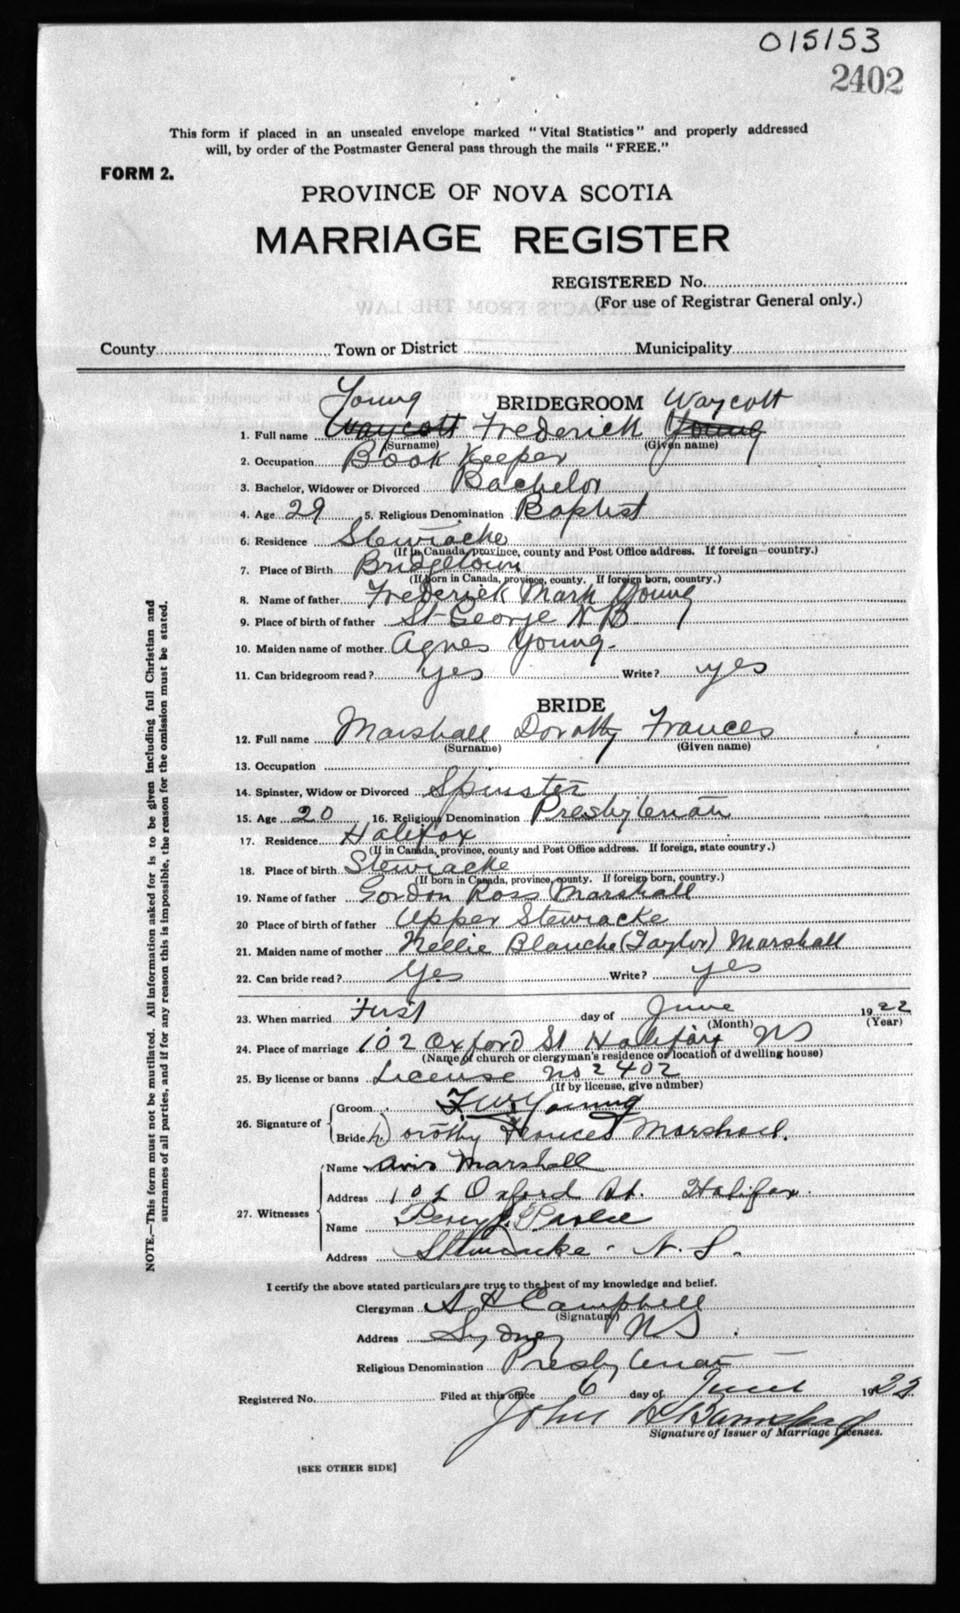 015153
2402
This form if placed in an unsealed envelope marked "Vital Statistics" and properly addressed
will, by order of the Postmaster General pass through the mails "FREE."
FORM 2.
PROVINCE OF NOVA SCOTIA
MARRIAGE REGISTER
REGISTERED No.
(For use of Registrar General only.)
County Town or District Municipality
Young BRIDEGROOM Waycott
1. Full name Waycott Frederick Young
(Surname) (Given name)
2. Occupation Book Keeper
3. Bachelor, Widower or Divorced Bachelor
4. Age 29 5. Religious Denomination Baptist
6. Residence Stewiacke
(If in Canada, province, county and Post Office address. If foreign—country.)
7. Place of Birth Bridgetown
(If born in Canada, province, county. If foreign born, country.)
8. Name of father Frederick Mark Young
9. Place of birth of father St George N B
10. Maiden name of mother Agnes Young.
11. Can bridegroom read? yes Write? yes
BRIDE
12. Full name Marshall Dorothy Frances
(Surname) (Given name)
13. Occupation
14. Spinster, Widow or Divorced Spinster
15. Age 20 16. Religious Denomination Presbyterian
17. Residence Halifax
(If in Canada, province, county and Post Office address. If foreign, state country.)
18. Place of birth Stewiacke
(If born in Canada, province, county. If foreign born, country.)
19. Name of father Gordon Ross Marshall
20 Place of birth of father Upper Stewiacke
21. Maiden name of mother Nellie Blanche (Taylor) Marshall
22. Can bride read? Yes Write? yes
23. When married First day of June 1922
(Month) (Year)
24. Place of marriage 102 Oxford St Halifax NS
(Name of church or clergyman's residence or location of dwelling house)
25. By license or banns License No 2402
(If by license, give number)
26. Signature of
Groom F. W. Young
Bride Dorothy Frances Marshall.
27. Witnesses
Name Avis Marshall
Address 102 Oxford St. Halifax.
Name Percy
Address Stewiacke. N. S.
I certify the above stated particulars are true to the best of my knowledge and belief.
Clergyman A H Campbell
(Signature)
Address Sydney NS
Religious Denomination Presbyterian
Registered No. Filed at this office 6 day of June 1922
John
Signature of Issuer of Marriage Licenses.
[SEE OTHER SIDE]
NOTE.—This form must not be mutilated. All information asked for is to be given including full Christian and
surnames of all parties, and if for any reason this is impossible, the reason for the omission must be stated.